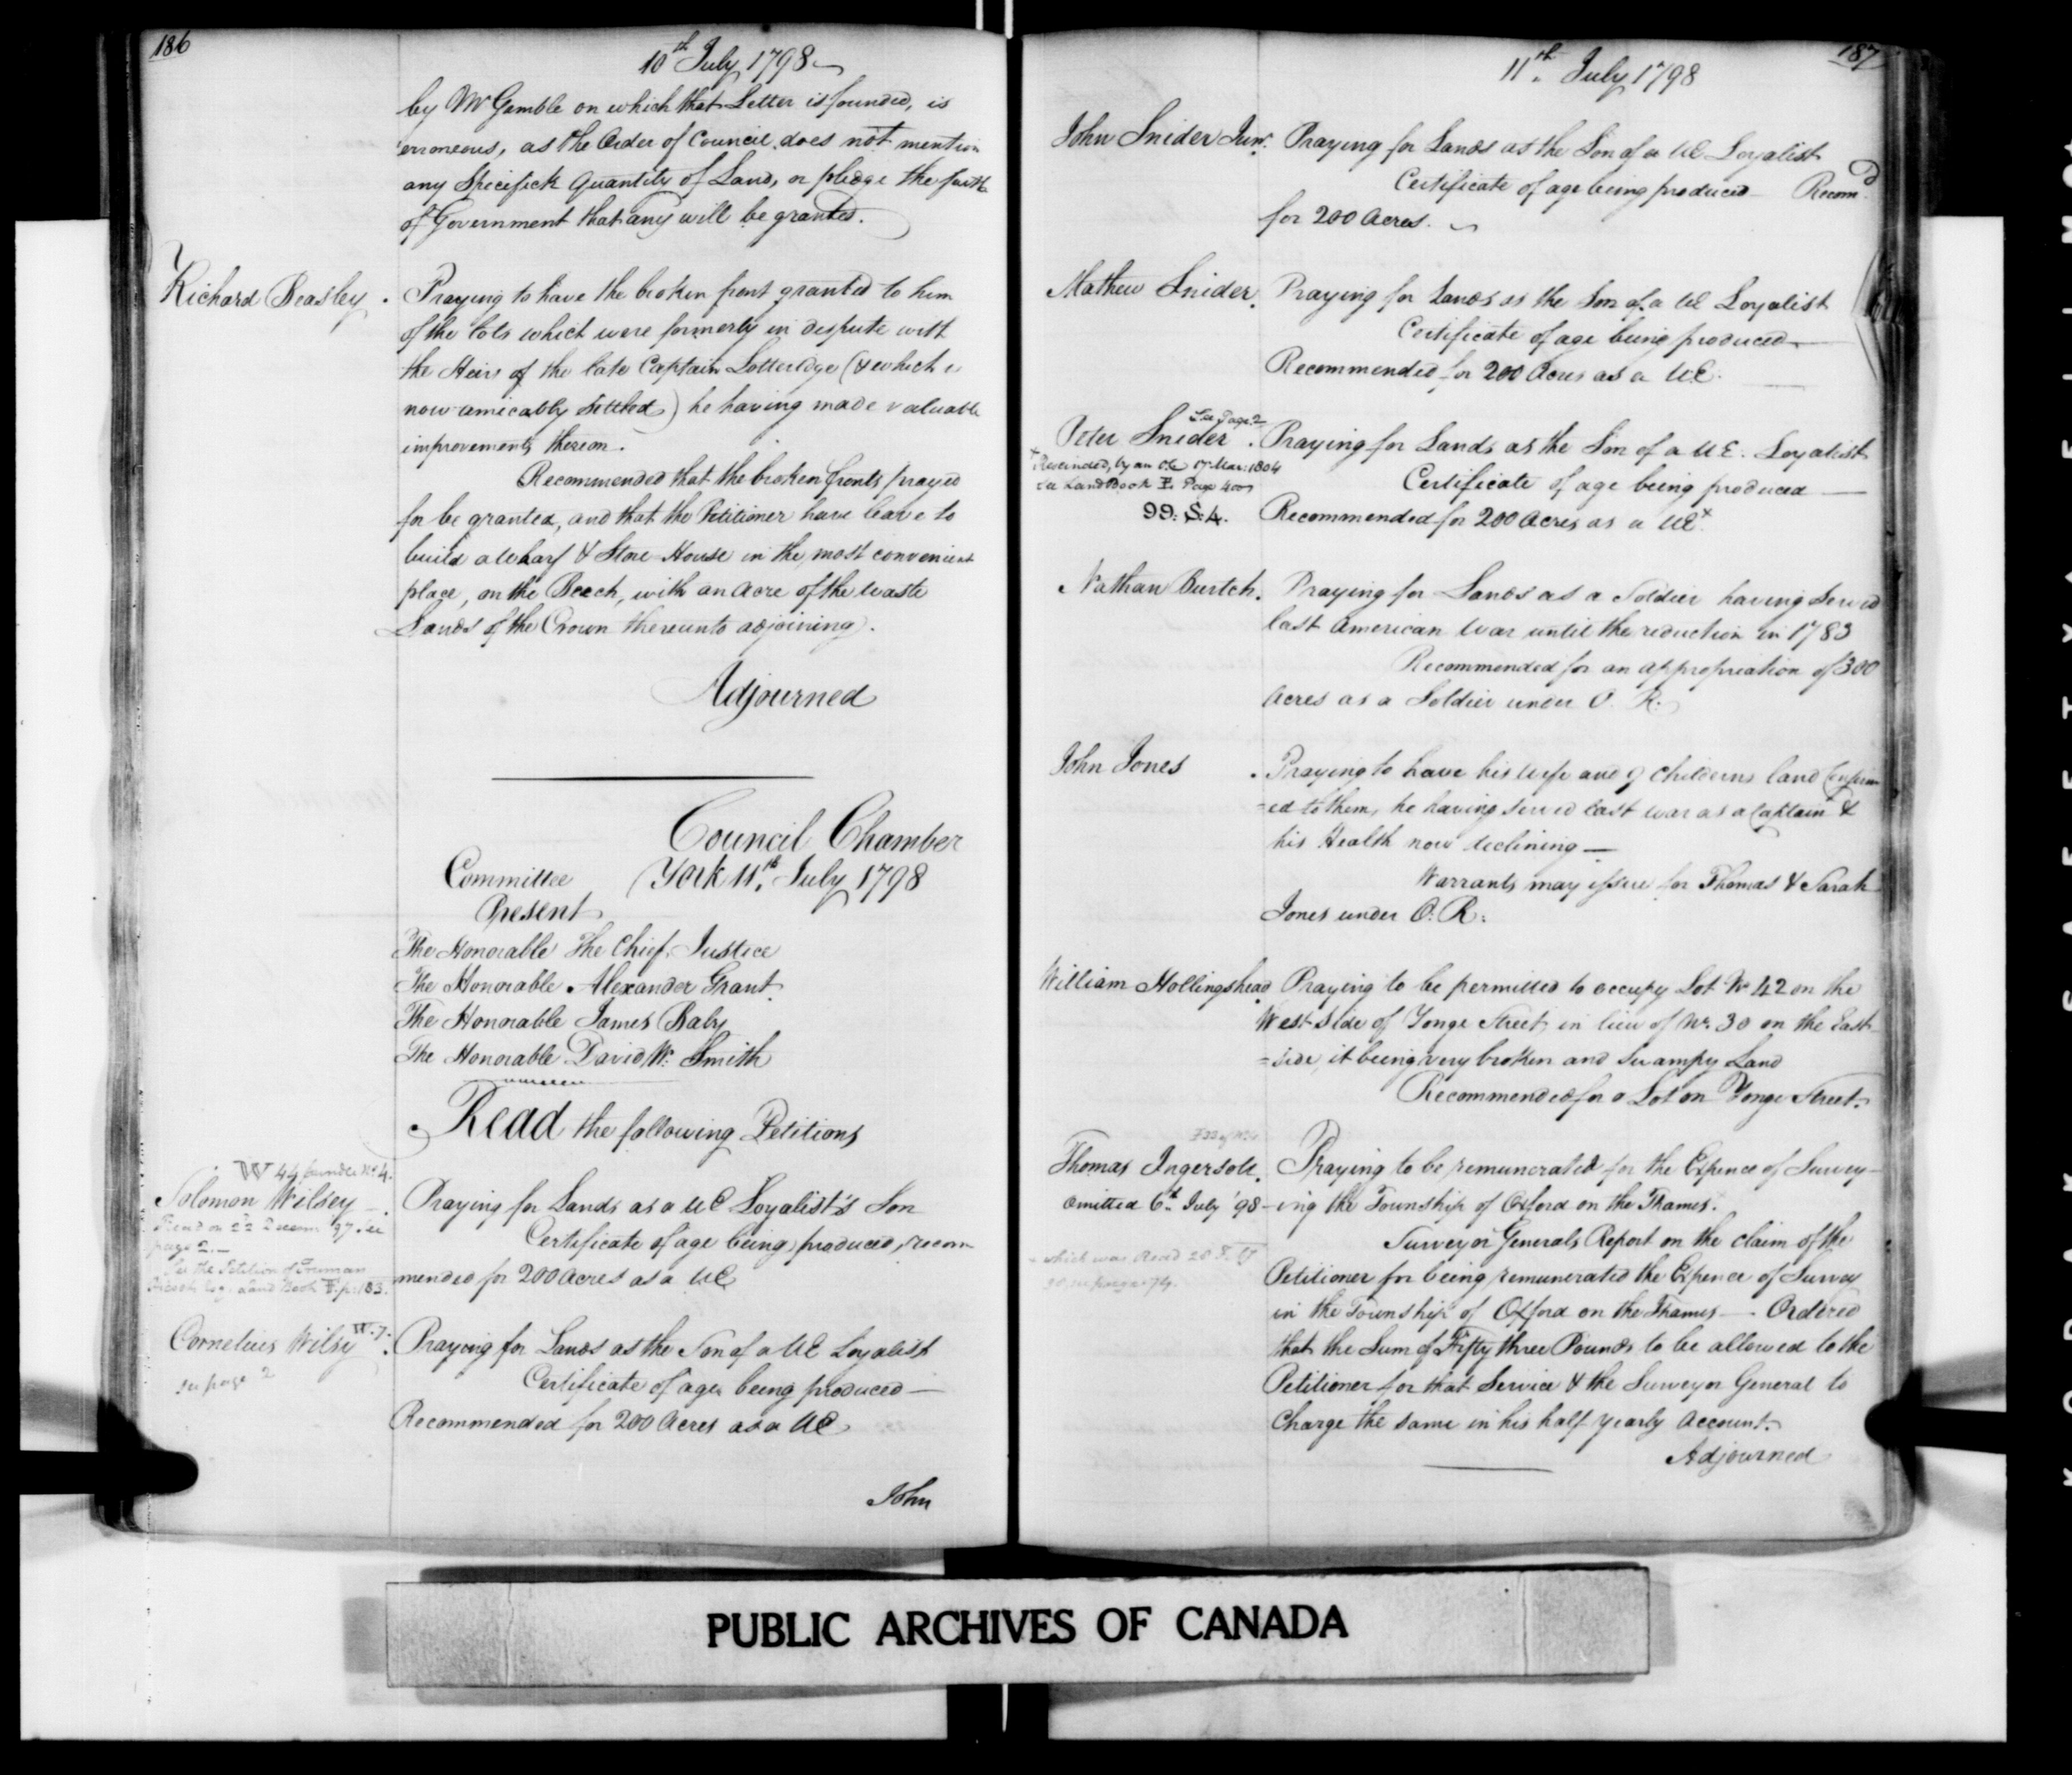 186
10th July 1798
by Mr Gamble on which that Letter is founded, is
erroneous, as the Order of Council does not mention
any Specifick Quantity of Land, or pledge the faith
of Government that any will be granted.
Richard Beasley . Praying to have the broken front granted to him
of the Lots which were formerly in dispute with
the Heirs of the late Captain Lotteridge (& which is
now amicably Settled) he having made valuable
improvements thereon.
Recommended that the broken fronts prayed
for be granted, and that the Petitioner have leave to
build a Wharf & Store House in the most convenient
place, on the Beech, with an Acre of the waste
Lands of the Crown thereunto adjoining.
Adjourned
Council Chamber
Committee York 11th July 1798
Present
The Honorable The Chief Justice
The Honorable Alexander Grant
The Honorable James Baby
The Honorable David W. Smith
Read the following Petitions
W 44 bundle No 4.
Solomon Wilsey . Praying for Lands as a UE Loyalist's Son
Read on 22 Decem 97 See
page 2.
Certificate of age being produced, recom
See the Petition of Truman
mended for 200 Acres as a UE
Esq. Land Book F. p. 183.
W. 7.
Cornelius Wilsy . Praying for Lands as the Son of a UE Loyalist
see page 2
Certificate of age being produced —
Recommended for 200 Acres as a UE
John
187
11th July 1798
John Snider Junr. Praying for Lands as the Son of a UE Loyalist
Certificate of age being produced Recomd
for 200 Acres.
Mathew Snider. Praying for Lands as the Son of a UE Loyalist
Certificate of age being produced —
Recommended for 200 Acres as a UE.
See Page 2
Peter Snider . Praying for Lands as the Son of a UE. Loyalist
x Rescinded, by an OC 17 Mar. 1804
See Land Book F. Page 400
Certificate of age being produced —
99. S. 4. Recommended for 200 Acres as a UE x
Nathan Burtch. Praying for Lands as a Soldier having Served
last American War until the reduction in 1783
Recommended for an appropriation of 300
Acres as a Soldier under O. R.
John Jones . Praying to have his wife and 9 Childerns land Confirm
=ed to them, he having served last war as a Captain &
his Health now declining —
Warrants may issue for Thomas & Sarah
Jones under O. R.
William Hollingshead. Praying to be permitted to occupy Lot No 42 on the
West side of Yonge Street in lieu of No. 30 on the East
=side, it being very broken and Swampy Land
Recommended for a Lot on Yonge Street.
Thomas Ingersoll. Praying to be remunerated for the Expence of Survey-
Omitted 6th July '98 -ing the Township of Oxford on the Thames.
Surveyor Generals Report on the claim of the
which was Read 20
see page 74.
Petitioner for being remunerated the Expence of Survey
in the Township of Oxford on the Thames — Ordered
that the Sum of Fifty three Pounds to be allowed to the
Petitioner for that Service & the Surveyor General to
Charge the same in his half yearly Account.
Adjourned
PUBLIC ARCHIVES OF CANADA